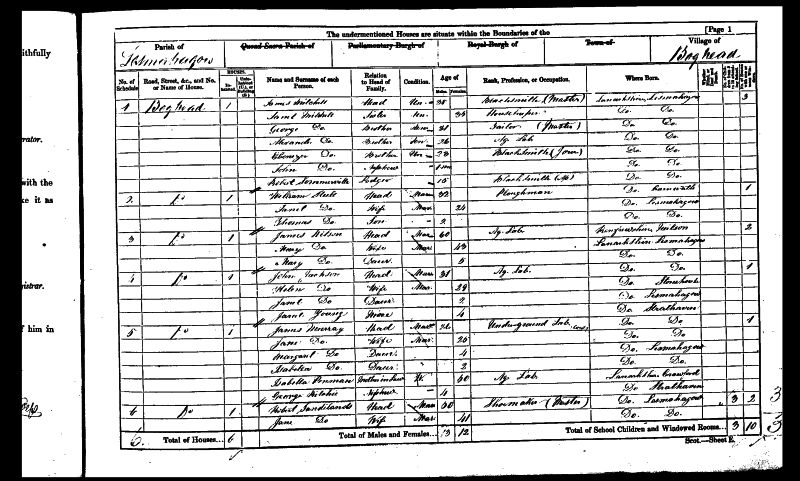 ithfully
rator.
with the
ke it as
istrar.
f him in
[Page 1
The undermentioned Houses are situate within the Boundaries of the
Parish of
Quoad Sacra Parish of
Parliamentary Burgh of
Royal Burgh of
Town of
Village of
Lesmahagow
Boghead
No. of Schedule
Road, Street, &c., and No. or Name of House.
HOUSES.
Name and Surname of each Person.
Relation to Head of Family.
Condition.
Age of
Males.
Females.
Rank, Profession, or Occupation.
Where Born.
1 Boghead 1 James Mitchell Head Un. 38 Blacksmith (Master) Lanarkshire, Lesmahagow 3
Janet Mitchell Sister Un. 35 Housekeeper Do. Do.
George Do. Brother Un. 31 Tailor (Master) Do. Do.
Alexander Do. Brother Un. 26 Ag. Lab. Do. Do.
Ebenezer Do. Brother Un. 23 Blacksmith (Jour) Do. Do.
John Do. Nephew Do. Do.
Robert Sommerville Lodger 15 Blacksmith (Ap) Do. Do.
2 Do 1 William Head Mar. 32 Ploughman Do. Carnwath 1
Janet Do. Wife Mar. 24 Do. Lesmahagow
Thomas Do. Son 2 Do. Do.
3 Do 1 James Wilson Head Mar. 60 Ag. Lab. Renfrewshire, 2
Mary Do. Wife Mar. 43 Lanarkshire Lesmahagow
Mary Do. Daur. 5 Do. Do.
4 Do 1 John Jackson Head Mar. 31 Ag. Lab. Do. Do. 1
Helen Do Wife Mar. 29 Do. Stonehouse
Janet Do. Daur. 2 Do. Lesmahagow
Janet Young Niece 4 Do. Strathaven
5 Do 1 James Murray Head Mar. 26 Underground Lab. Do. Do. 1
Jane Do. Wife Mar. 25 Do. Do.
Margaret Do Daur. 4 Do. Lesmahagow
Isabella Do Daur. 2 Do. Do.
Isabella Penman W. 60 Ag. Lab. Lanarkshire Crawford
George Ritchie Nephew 4 Do Strathaven
6 Do 1 Robert Sandilands Head Mar 50 Shoemaker (Master) Do. Lesmahagow 3 2
Jane Do Wife Mar. 41 Do. Do.
6. Total of Houses... 6
Total of Males and Females... 13 12
Total of School Children and Windowed Rooms... 3 10
Scot.—Sheet E.
3
3